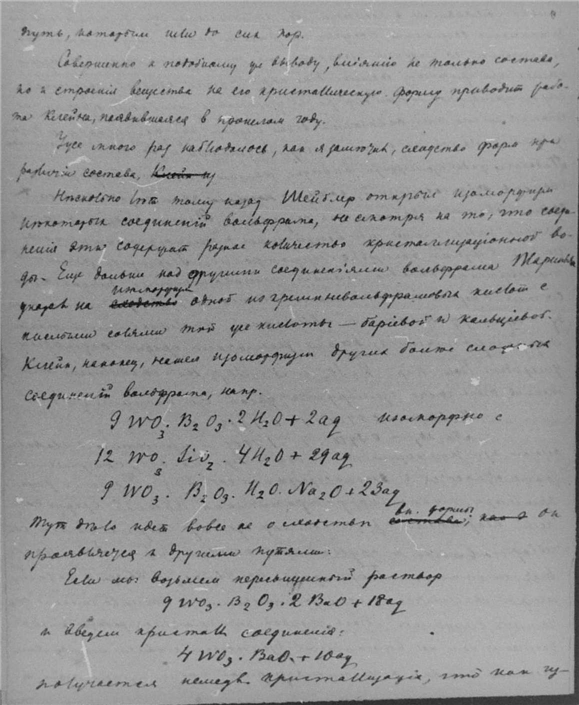 путь, которым шли до сих пор.
Совершенно к подобному же выводу, вліянію не только состава,
но и строенія вещества на его кристаллическую форму приводит рабо-
та Клейна, появившаяся в прошлом году.
Уже много раз наблюдалось, как я замѣтил, сходство форм при
различіи состава,
Нѣсколько лѣт тому назад Шейблер открыл изоморфизм
нѣкоторых соединеній вольфрама, не смотря на то, что соеди-
ненія эти содержат разное количество кристаллизаціонной во-
ды. Еще дальше над другими соединеніями вольфрама Мариньяк
указал на изоморфизм одной из кремневольфрамовых кислот с
кислыми солями той же кислоты — баріевой и кальціевой.
Клейн, наконец, нашел изоморфизм других более сложных
соединеній вольфрама, напр.
9 WO3 . B2O3 . 2H2O + 2aq изоморфно с
12 WO3 SiO2 . 4H2O + 29aq
9 WO3 . B2O3 . H2O . Na2O + 23aq
Тут дѣло идет вовсе не о сходствѣ вн. формы; он
проявляется и другими путями:
Если мы возьмем пересыщенный раствор
9 WO3 . B2O3 . 2 BaO + 18aq
и введем кристалл соединенія:
4 WO3 . BaO + 10aq
получается немедл. кристаллизація, что как из-